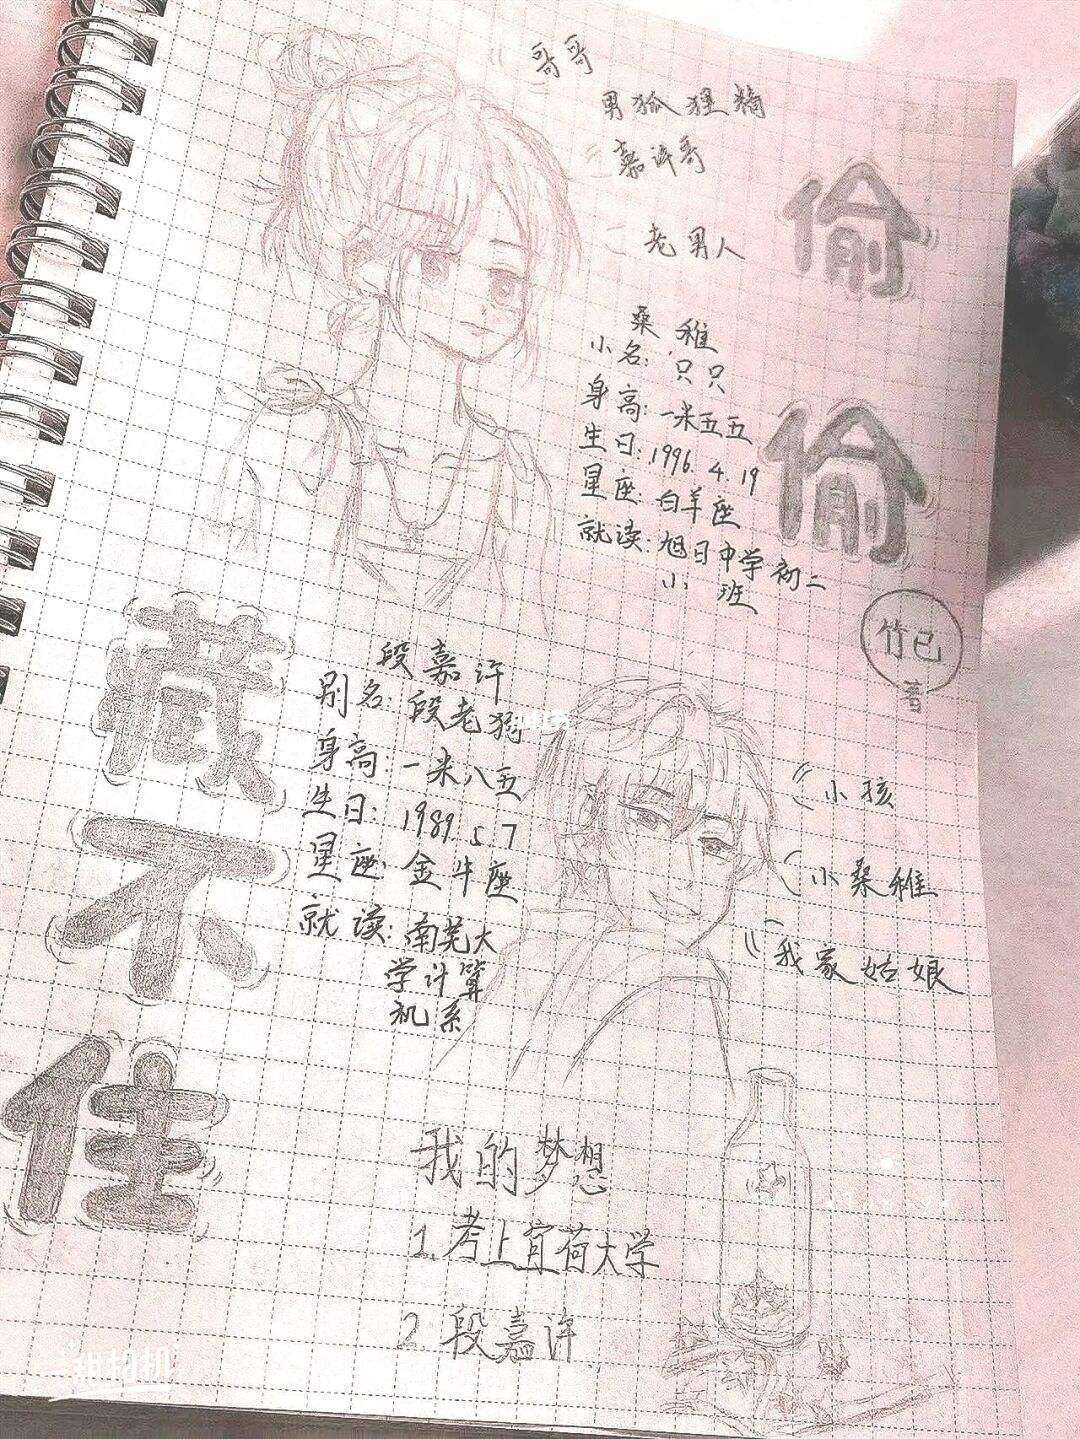 哥哥
男狐狸精
嘉许哥
老男人
偷偷
桑稚
小名：只只
身高：一米五五
生日：1996.4.19
星座：白羊座
就读：旭日中学初二
小 班
竹已
著
藏不住
段嘉许
别名：段老狗
身高：一米八五
生日：1989.5.7
星座：金牛座
就读：南芜大
学计算
机系
小孩
小桑稚
我家姑娘
我的梦想
1.考上宜荷大学
2.段嘉许
甜相机